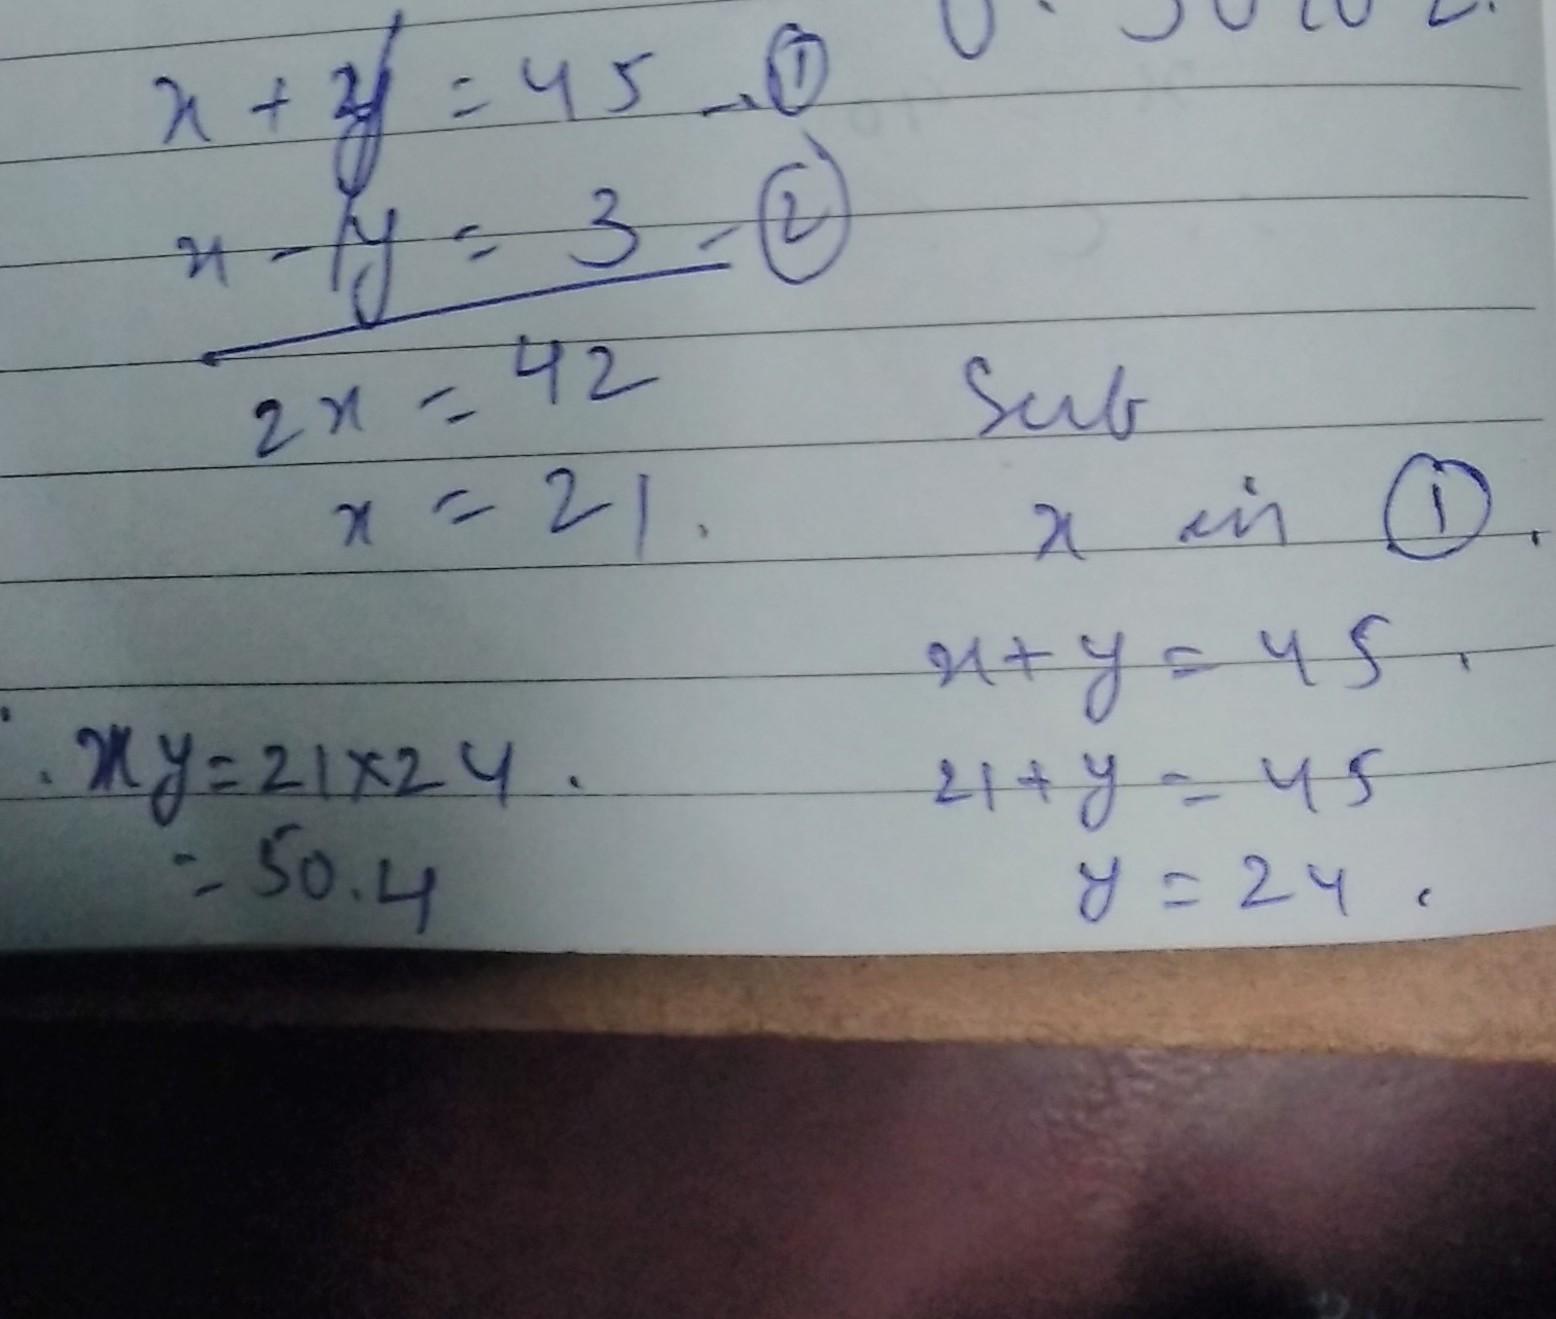 x + y = 45 - ①
x - y = 3 - ②
2x = 42
x = 21.
Sub
x in ①.
x + y = 45.
21 + y = 45
y = 24.
. xy = 21 x 24.
= 50.4